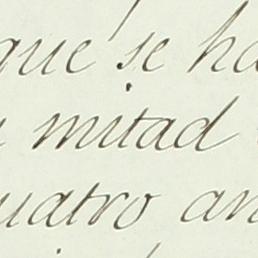 que se ha
mitad
cuatro an